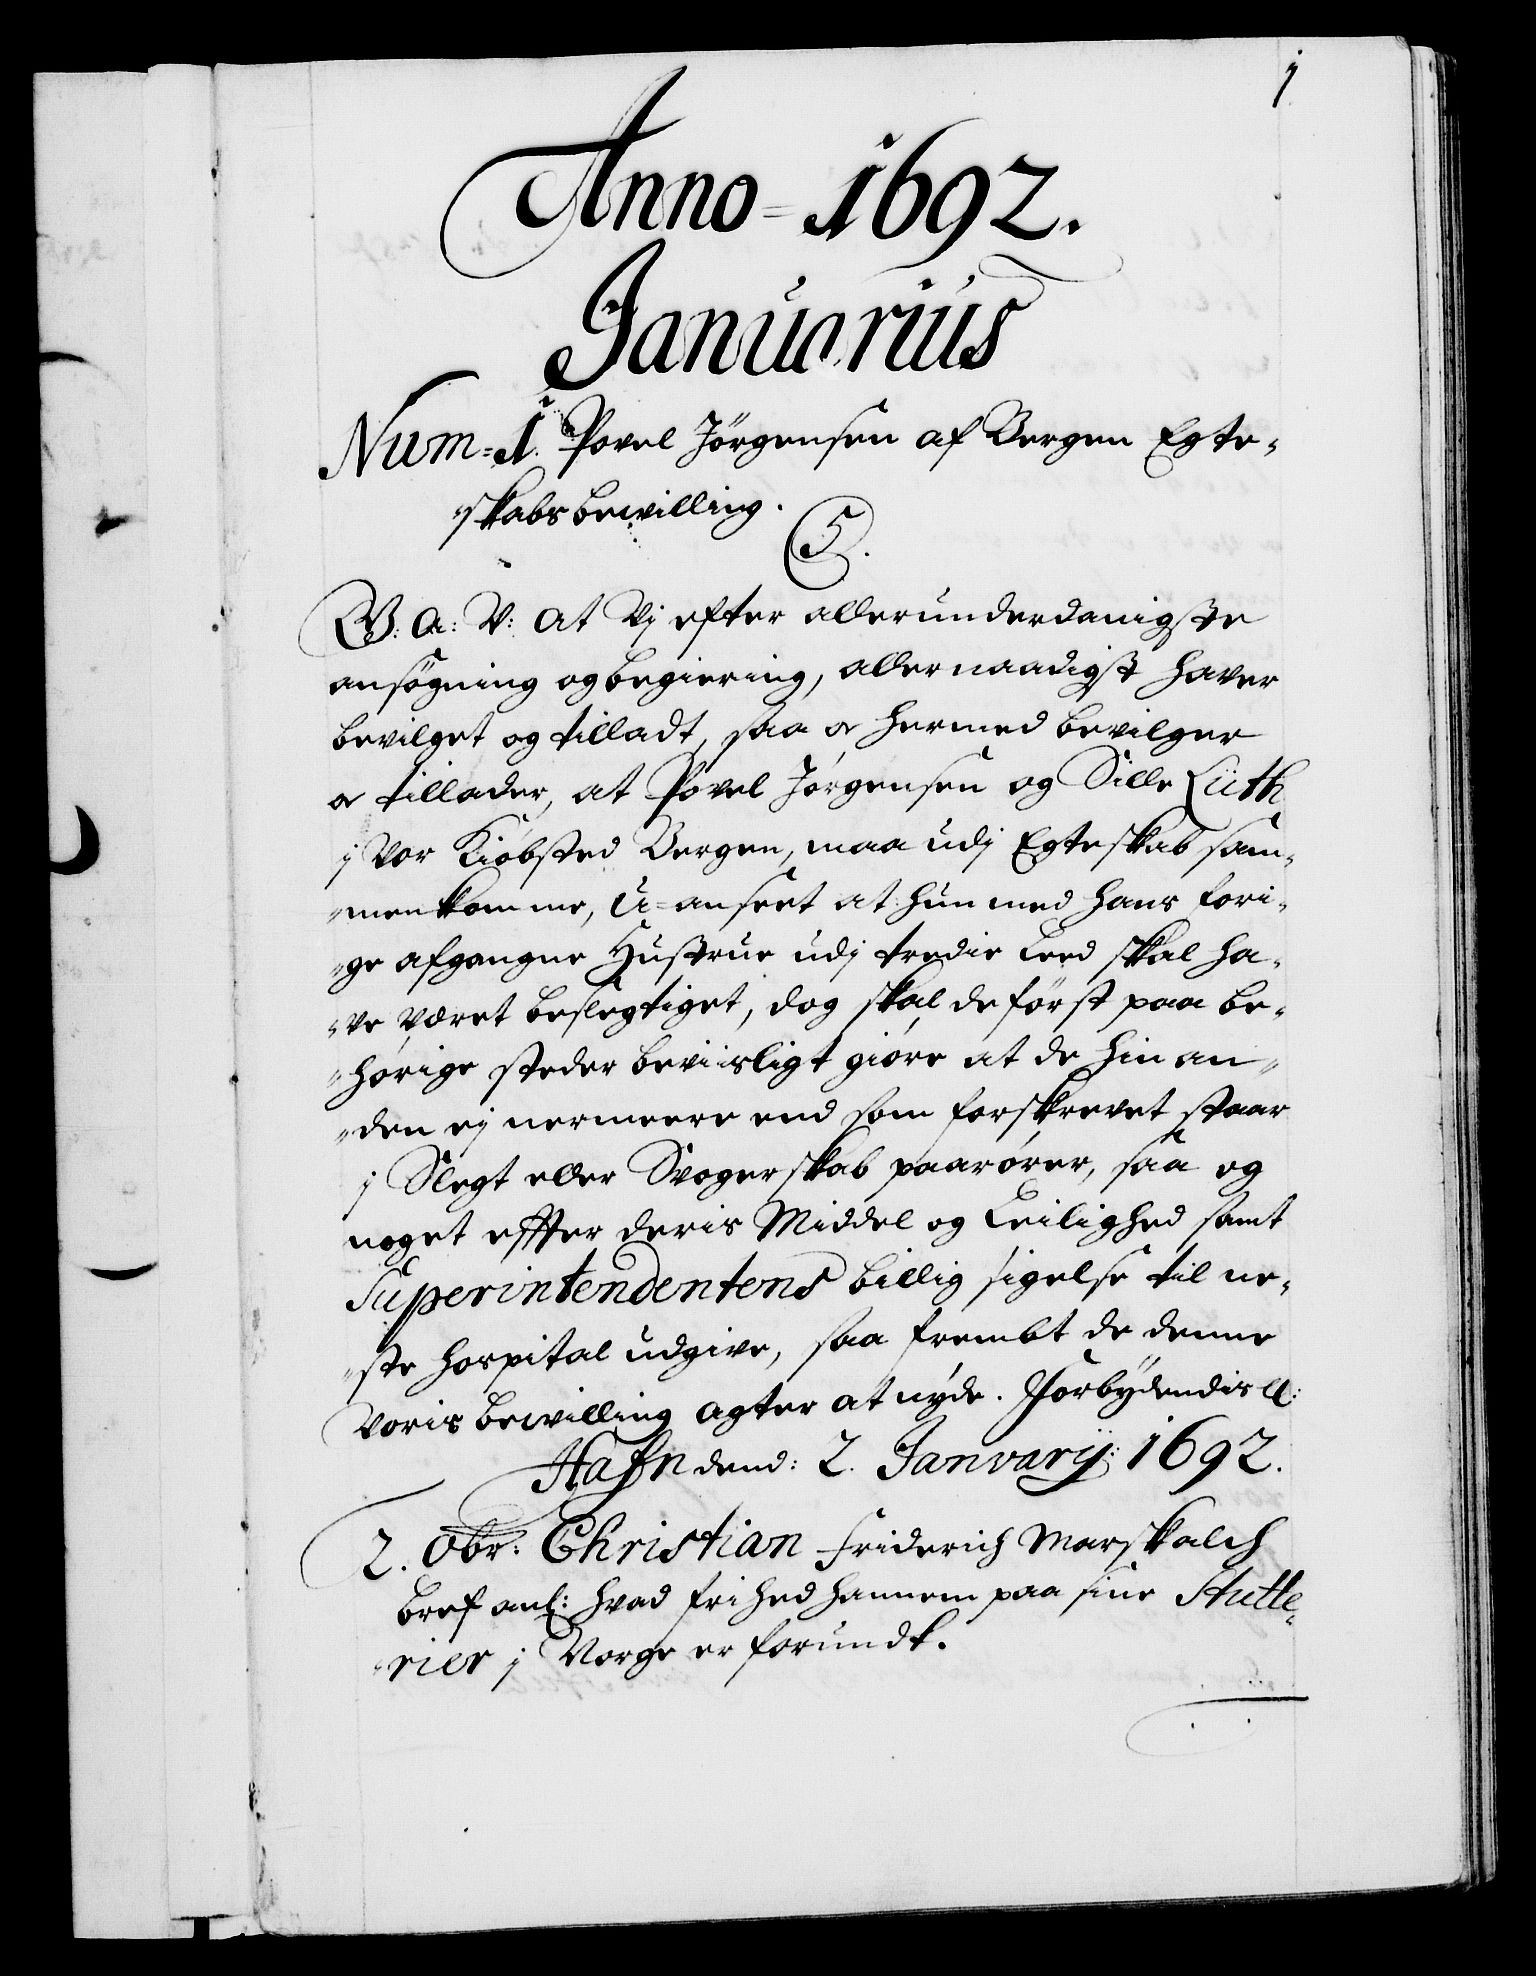 1
Anno = 1692.
Januarius
Num = 1. Povel Jörgensen af Bergen Egte-
-skabs bewilling.
C5.
W: A: V: at Vj efter allerunderdanigste
ansögning og begiering, allernaadigst haver
bevilget og tilladt, saa oc hermed bevilger
oc tillader, at Povel Jörgensen og Sille Lüth
j vor Kiöbsted Bergen, maa udj Egteskab sam-
-menkomme, U=anseet at hun med hans fori-
-ge afgangne Hustrue udj tredie Leed skal ha-
-ve veret beslegtiget, dog skal de först paa be-
-hörige steder beviisligt giöre at de hin an-
-den ej nermeere end som forskrevet staar
j Slegt eller Svogerskab paarörer, saa og
noget effter deris Middel og Leilighed samt
Superintendentens billig sigelse til ne-
-ste hospital udgive, saa frembt de denne
voris bewilling agter at nyde. Forbydendis ll:
Hafn dend: 2. Janvarij: 1692.
2. Obr: Christian Friderich Marskalch
bref anl: hvad frihed hannem paa sine Stutte-
-rier j Norge er forundt.